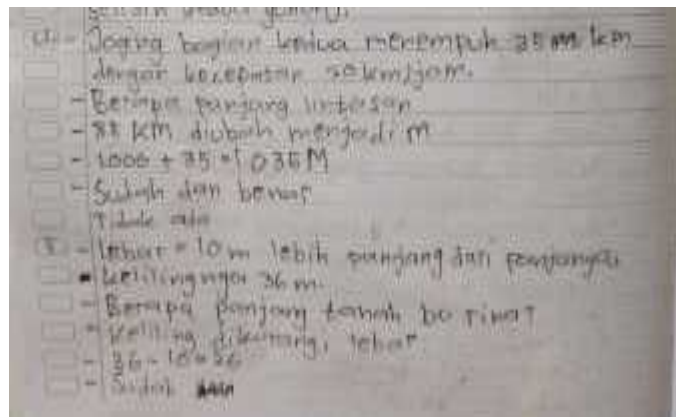 - Jogng bagian kedua menempuh 35 m km
dengan kecepatan 50 km/jam.
- Berapa panjang lintasan
- 35 KM diubah menjadi m
- 1.000 + 35 = 1 035 M
- Sudah dan benar
Tidak ada
- lebar = 10 m lebih panjang dari panjangnya
- kelilingnya 36 m.
- Berapa panjang tanah bo Tina?
- keliling dikurangi lebar
- 36 - 10 = 26
- Sudah